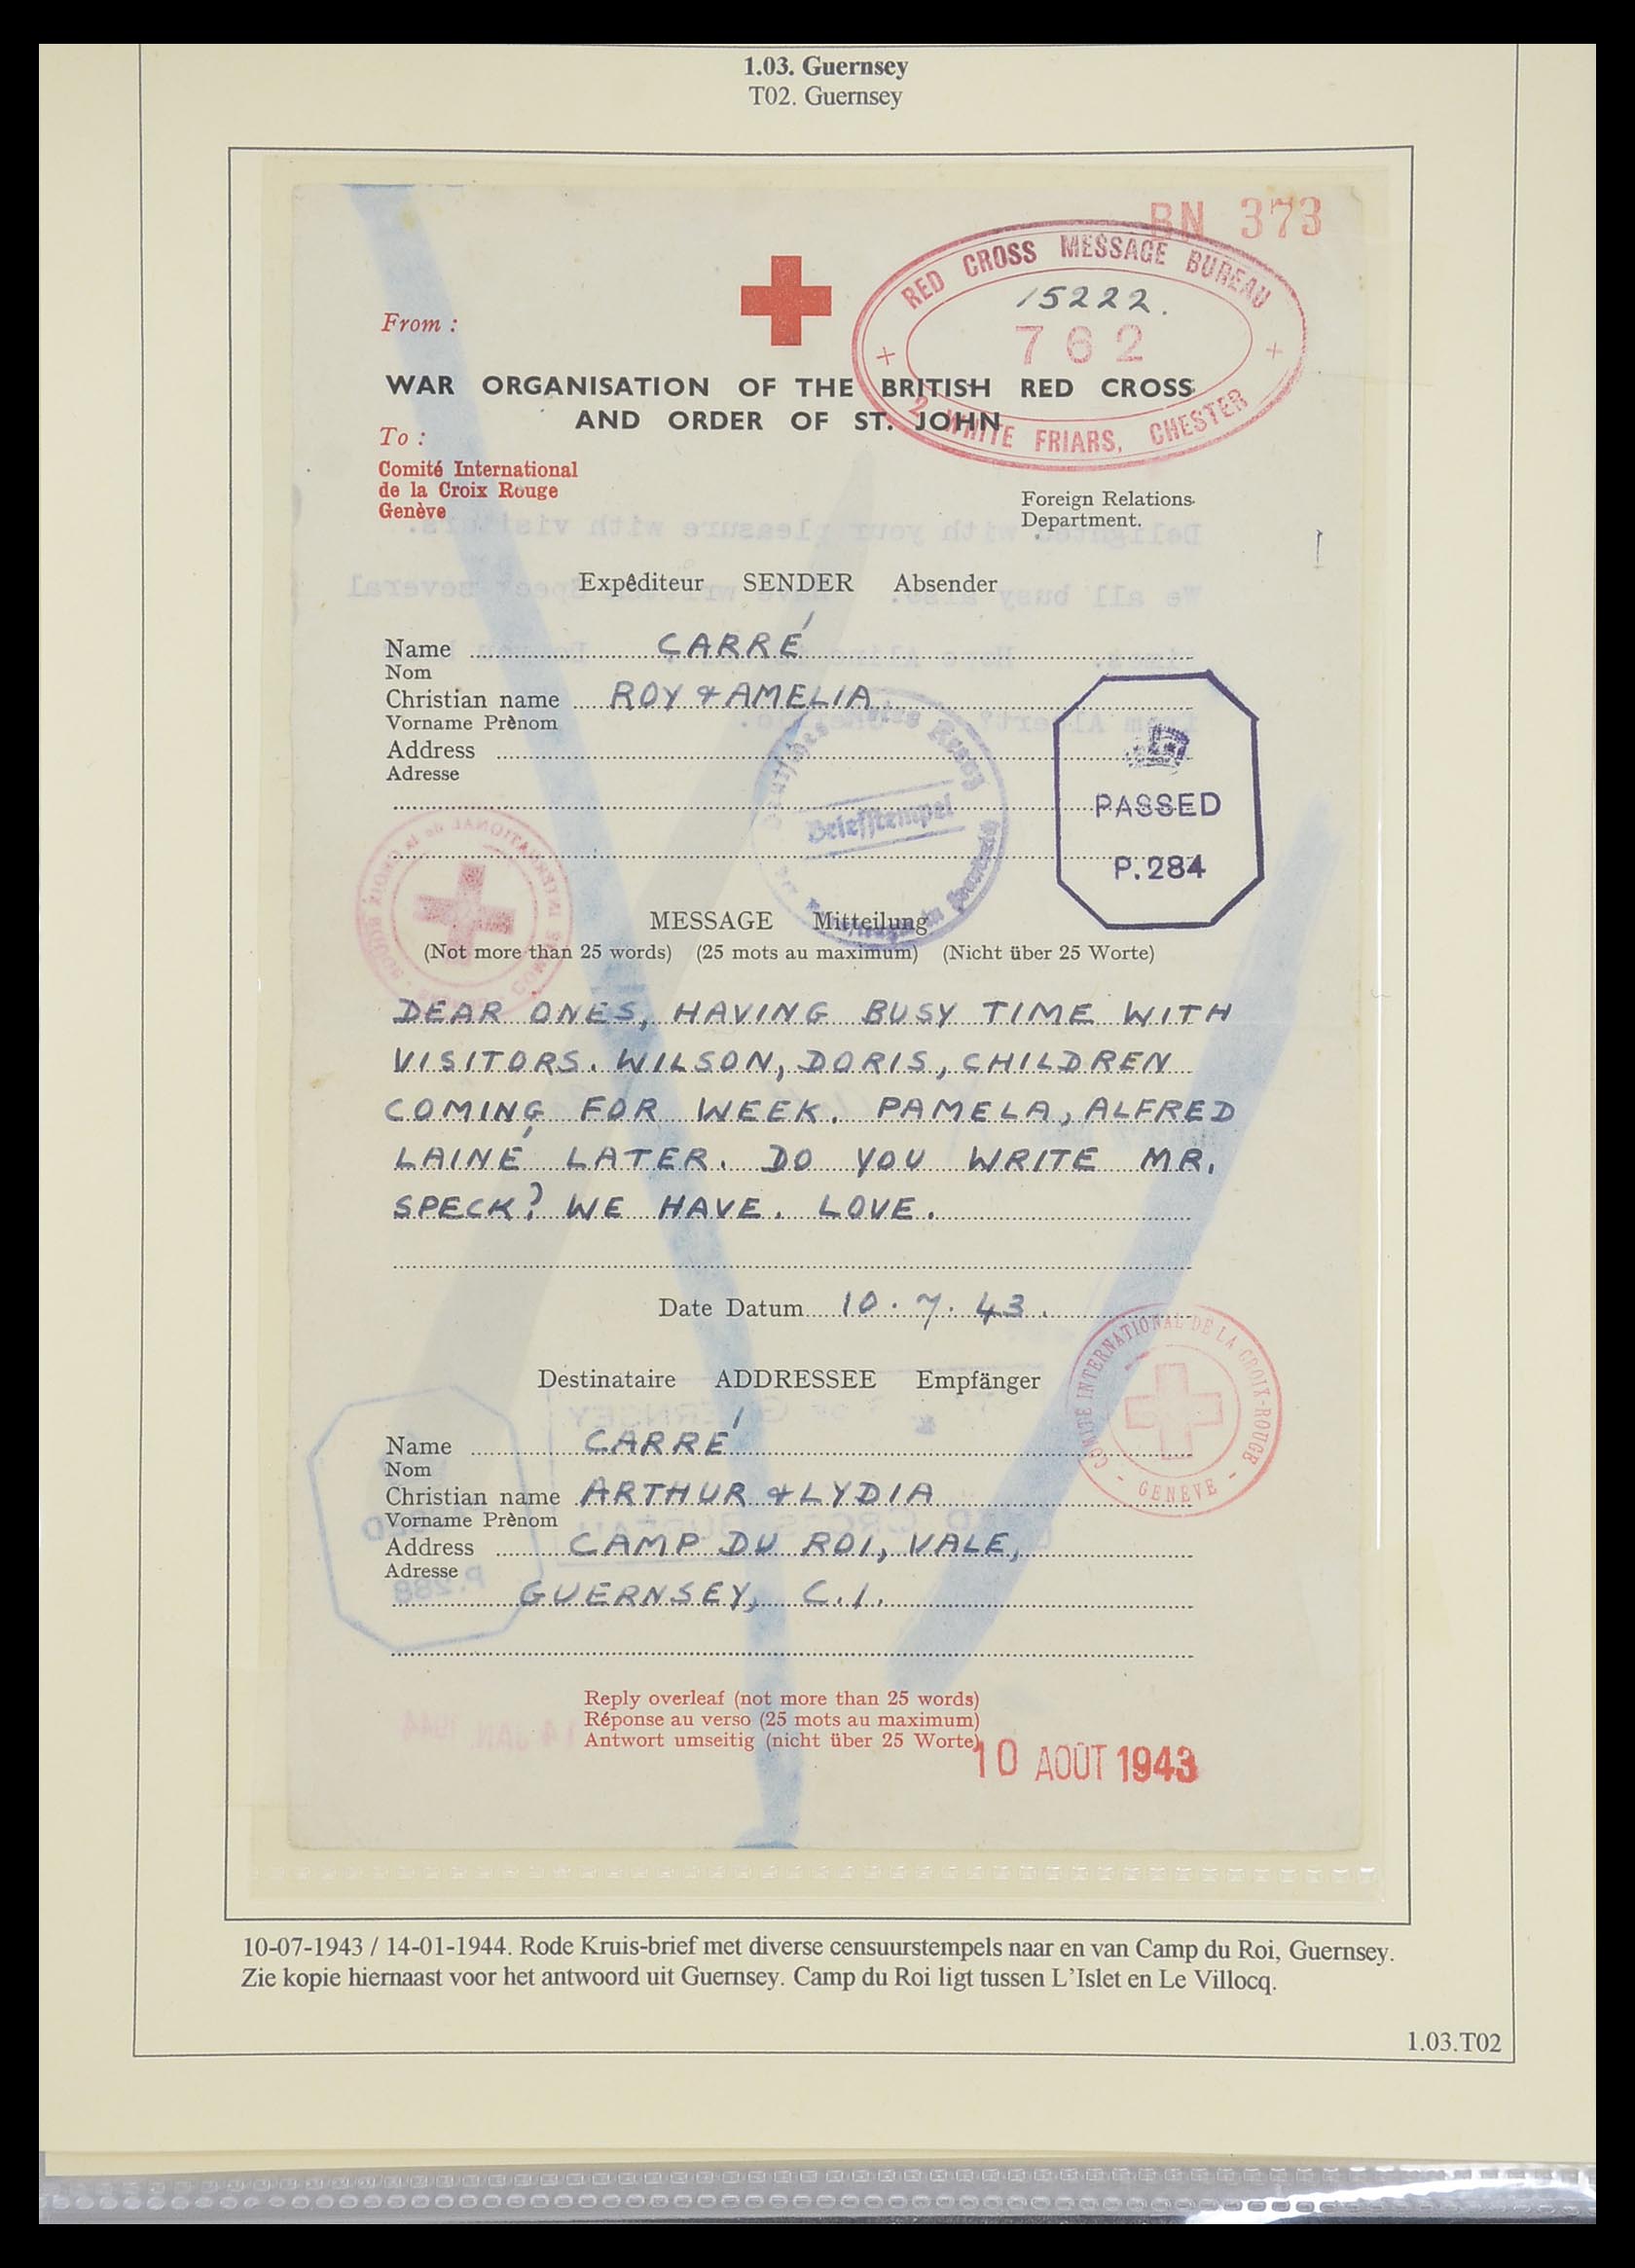 1.03. Guernsey
T02. Guernsey
BN 373
RED CROSS MESSAGE BUREAU
15222.
762
2 WHITE FRIARS, CHESTER
From :
WAR ORGANISATION OF THE BRITISH RED CROSS
AND ORDER OF ST. JOHN
To :
Comité International
de la Croix Rouge
Genève
Foreign Relations
Department.
Expêditeur SENDER Absender
Name CARRÉ
Nom
Christian name ROY & AMELIA
Vorname Prènom
Address
Adresse
Deutsches Rotes Kreuz
Briefstempel
PASSED
P.284
MESSAGE Mitteilung
(Not more than 25 words) (25 mots au maximum) (Nicht über 25 Worte)
DEAR ONES, HAVING BUSY TIME WITH
VISITORS. WILSON, DORIS, CHILDREN
COMING FOR WEEK. PAMELA, ALFRED
LAINÉ LATER. DO YOU WRITE MR.
SPECK? WE HAVE. LOVE.
Date Datum 10.7.43.
COMITÉ INTERNATIONAL DE LA CROIX-ROUGE
- GENÈVE -
Destinataire ADDRESSEE Empfänger
Name CARRÉ
Nom
Christian name ARTHUR & LYDIA
Vorname Prènom
Address CAMP DU ROI, VALE,
Adresse
GUERNSEY, C.I.
Reply overleaf (not more than 25 words)
Réponse au verso (25 mots au maximum)
Antwort umseitig (nicht über 25 Worte)
10 AOÛT 1943
10-07-1943 / 14-01-1944. Rode Kruis-brief met diverse censuurstempels naar en van Camp du Roi, Guernsey.
Zie kopie hiernaast voor het antwoord uit Guernsey. Camp du Roi ligt tussen L'Islet en Le Villocq.
1.03.T02